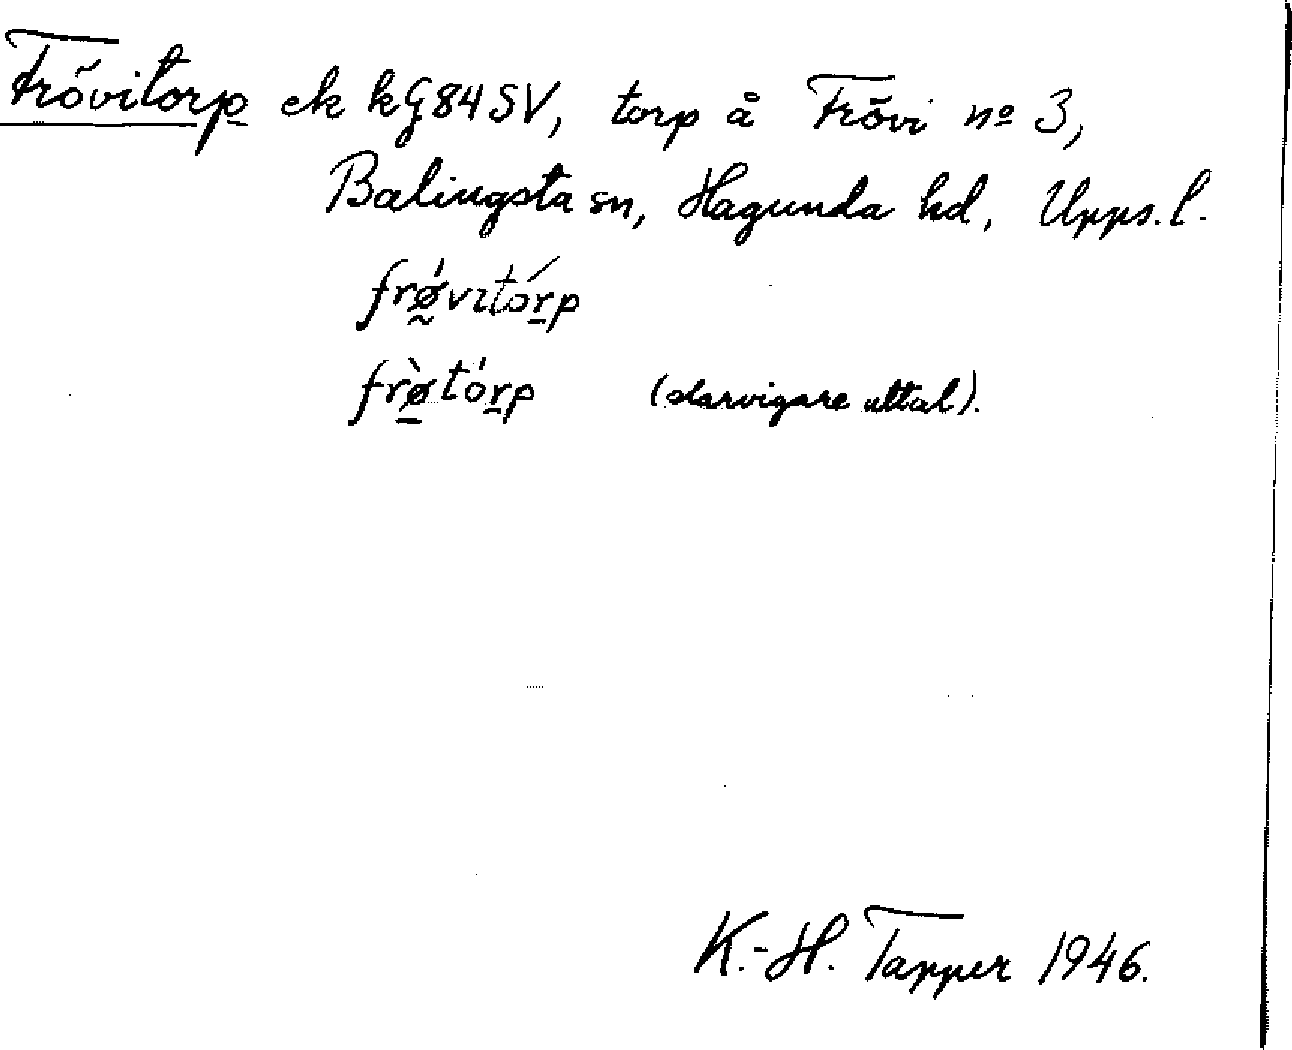 Frövitorp ek kG84SV, torp å Frövi nº 3,
Balingsta sn, Hagunda hd, Upps.l.
frǿ̰vıtór̲p
frø̲̀tór̲p (slarvigare uttal).
K.-H. Tapper 1946.